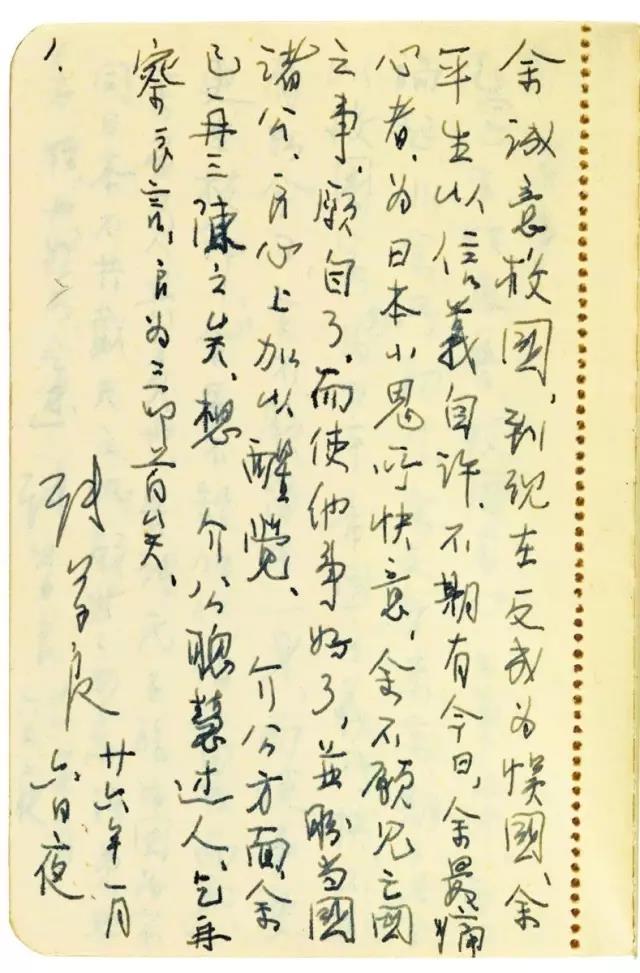 1.
余誠意救國,到現在反成为悮國,余
平生以信義自许,不期有今日,余最痛
心者,为日本小鬼所快意,余不願见亡國
之事,願自了,而使他事好了,並盼当國
诸公,良心上加以醒覺、 介公方面,余
已再三陳之矣,想 介公聰慧过人,乞再
察良言,良为三叩首矣、
张学良 廿六年一月
六日夜